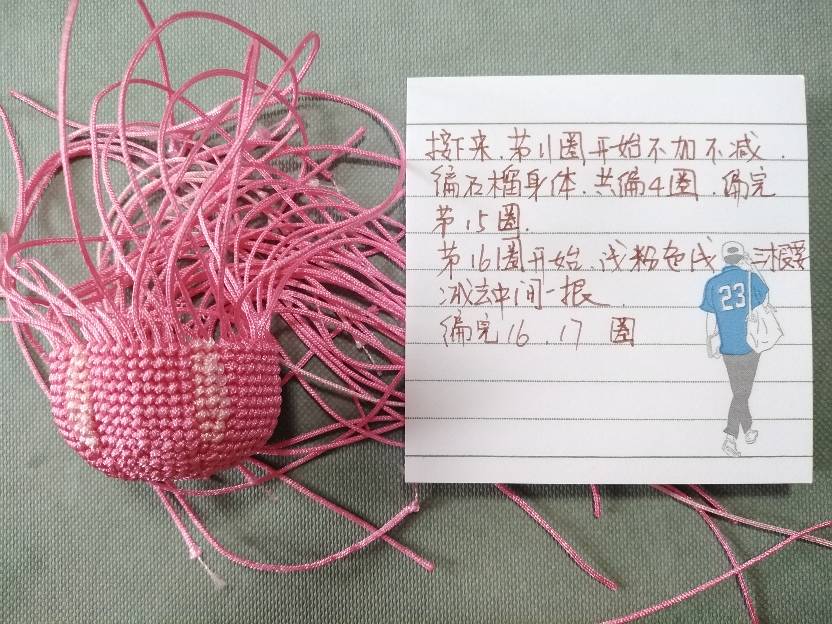 接下来、第11圈开始不加不减.
编石榴身体.共编4圈.编完
第15圈.
第16圈开始.浅粉色线、三根要
减去中间一根.
编完16、17圈
23